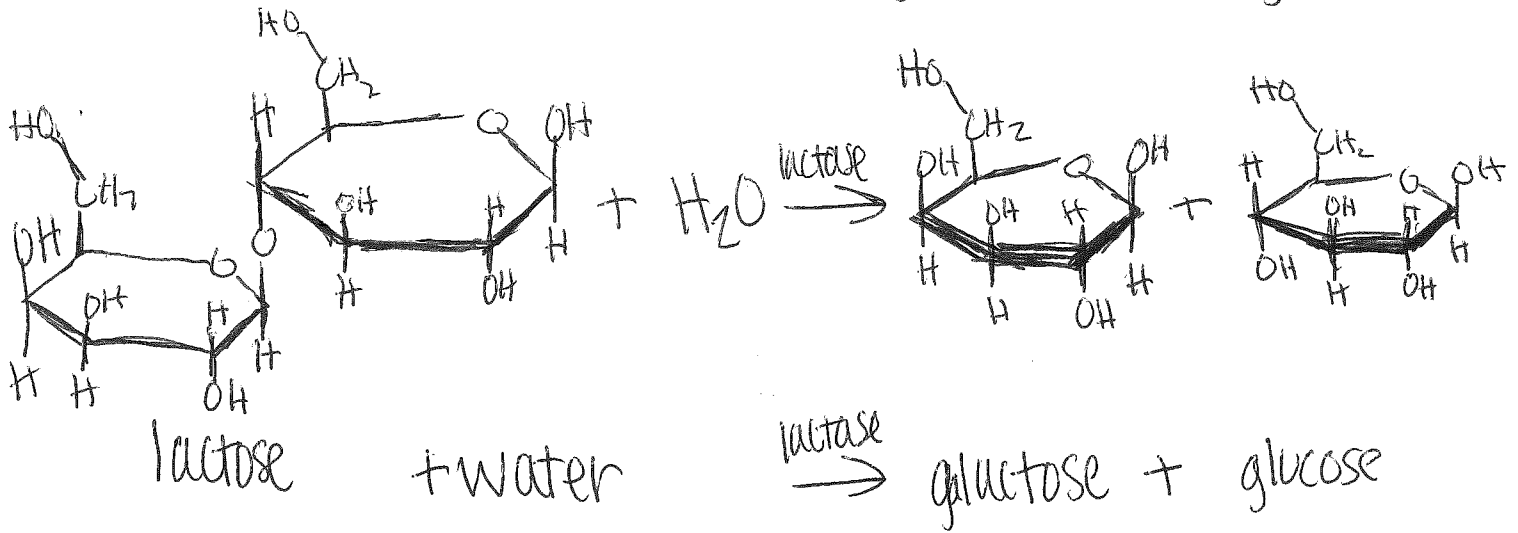 HO
CH2
H
O
OH
HO
CH2
OH
O
O
OH
H
H
H
OH
OH
H
H
H
H
OH
+ H2O
lactase
HO
CH2
OH
O
OH
OH
H
H
H
H
OH
+
HO
CH2
H
O
OH
OH
H
H
OH
H
OH
lactose + water
lactase
galactose + glucose